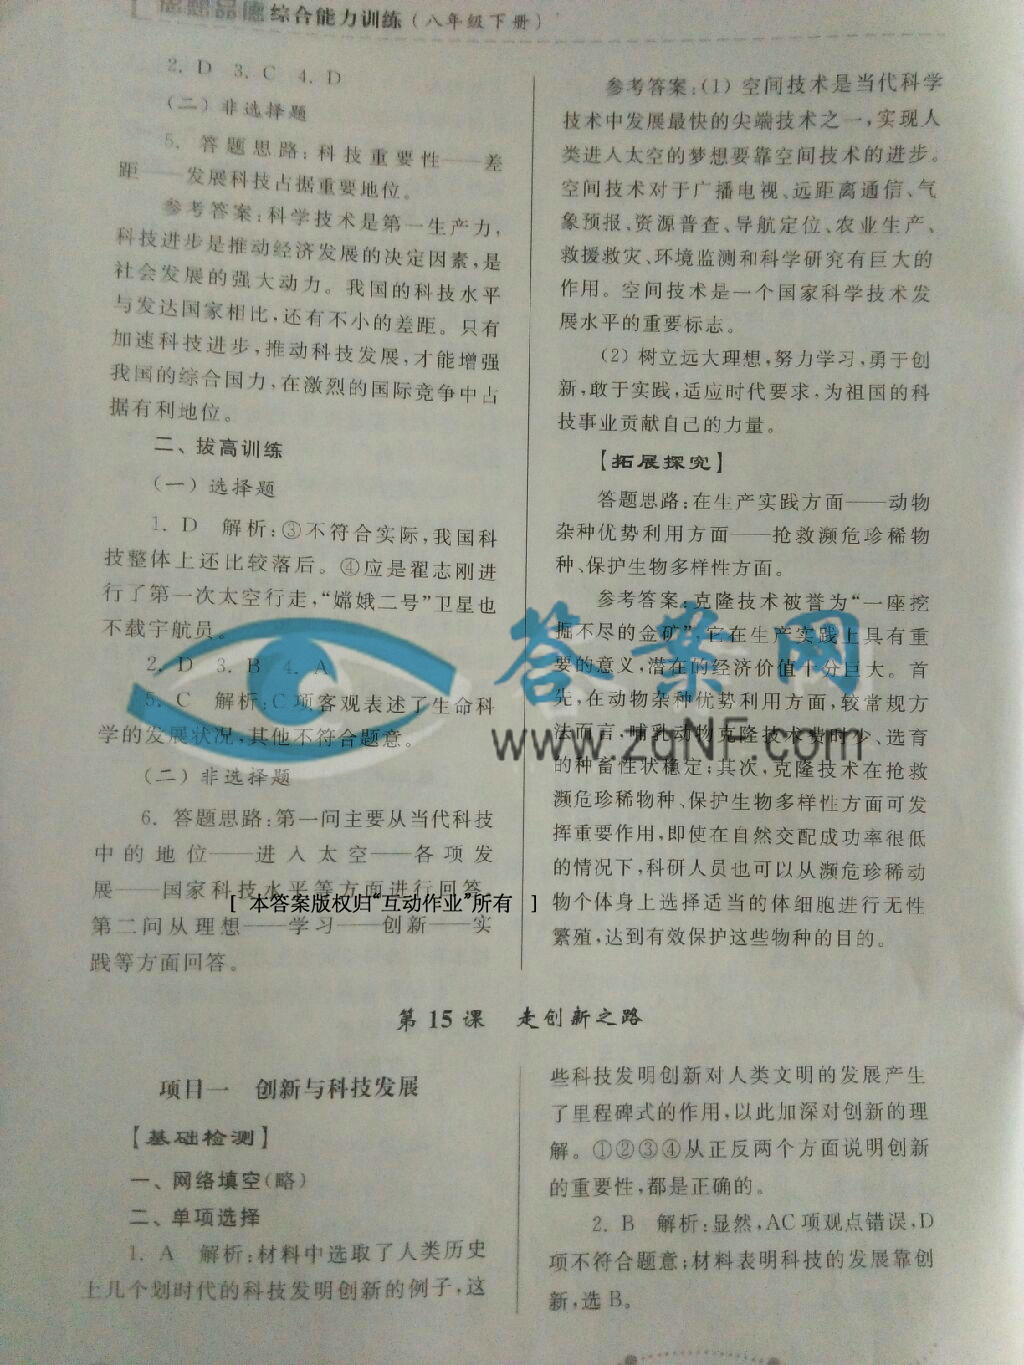 综合能力训练(八年级下册)
2. D 3. C 4. D
(二)非选择题
5. 答题思路:科技重要性——差
距——发展科技占据重要地位。
参考答案:科学技术是第一生产力,
科技进步是推动经济发展的决定因素,是
社会发展的强大动力。我国的科技水平
与发达国家相比,还有不小的差距。只有
加速科技进步,推动科技发展,才能增强
我国的综合国力,在激烈的国际竞争中占
据有利地位。
二、拔高训练
(一)选择题
1. D 解析:③不符合实际,我国科
技整体上还比较落后。④应是翟志刚进
行了第一次太空行走,“嫦娥二号”卫星也
不载宇航员。
2. D 3. B 4. A
5. C 解析:C项客观表述了生命科
学的发展状况,其他不符合题意。
(二)非选择题
6. 答题思路:第一问主要从当代科技
中的地位——进入太空——各项发
展——国家科技水平等方面进行回答,
第二问从理想——学习——创新——实
践等方面回答。
参考答案:(1)空间技术是当代科学
技术中发展最快的尖端技术之一,实现人
类进入太空的梦想要靠空间技术的进步。
空间技术对于广播电视、远距离通信、气
象预报、资源普查、导航定位、农业生产、
救援救灾、环境监测和科学研究有巨大的
作用。空间技术是一个国家科学技术发
展水平的重要标志。
(2)树立远大理想,努力学习,勇于创
新,敢于实践,适应时代要求,为祖国的科
技事业贡献自己的力量。
【拓展探究】
答题思路:在生产实践方面——动物
杂种优势利用方面——抢救濒危珍稀物
种、保护生物多样性方面。
参考答案:克隆技术被誉为“一座挖
掘不尽的金矿”,它在生产实践上具有重
要的意义,潜在的经济价值十分巨大。首
先,在动物杂种优势利用方面,较常规方
法而言,哺乳动物克隆技术费时少、选育
的种畜性状稳定;其次,克隆技术在抢救
濒危珍稀物种、保护生物多样性方面可发
挥重要作用,即使在自然交配成功率很低
的情况下,科研人员也可以从濒危珍稀动
物个体身上选择适当的体细胞进行无性
繁殖,达到有效保护这些物种的目的。
答案网
www.zqNF.com
[ 本答案版权归“互动作业”所有 ]
第15课 走创新之路
项目一 创新与科技发展
【基础检测】
一、网络填空(略)
二、单项选择
1. A 解析:材料中选取了人类历史
上几个划时代的科技发明创新的例子,这
些科技发明创新对人类文明的发展产生
了里程碑式的作用,以此加深对创新的理
解。①②③④从正反两个方面说明创新
的重要性,都是正确的。
2. B 解析:显然,AC项观点错误,D
项不符合题意;材料表明科技的发展靠创
新,选B。